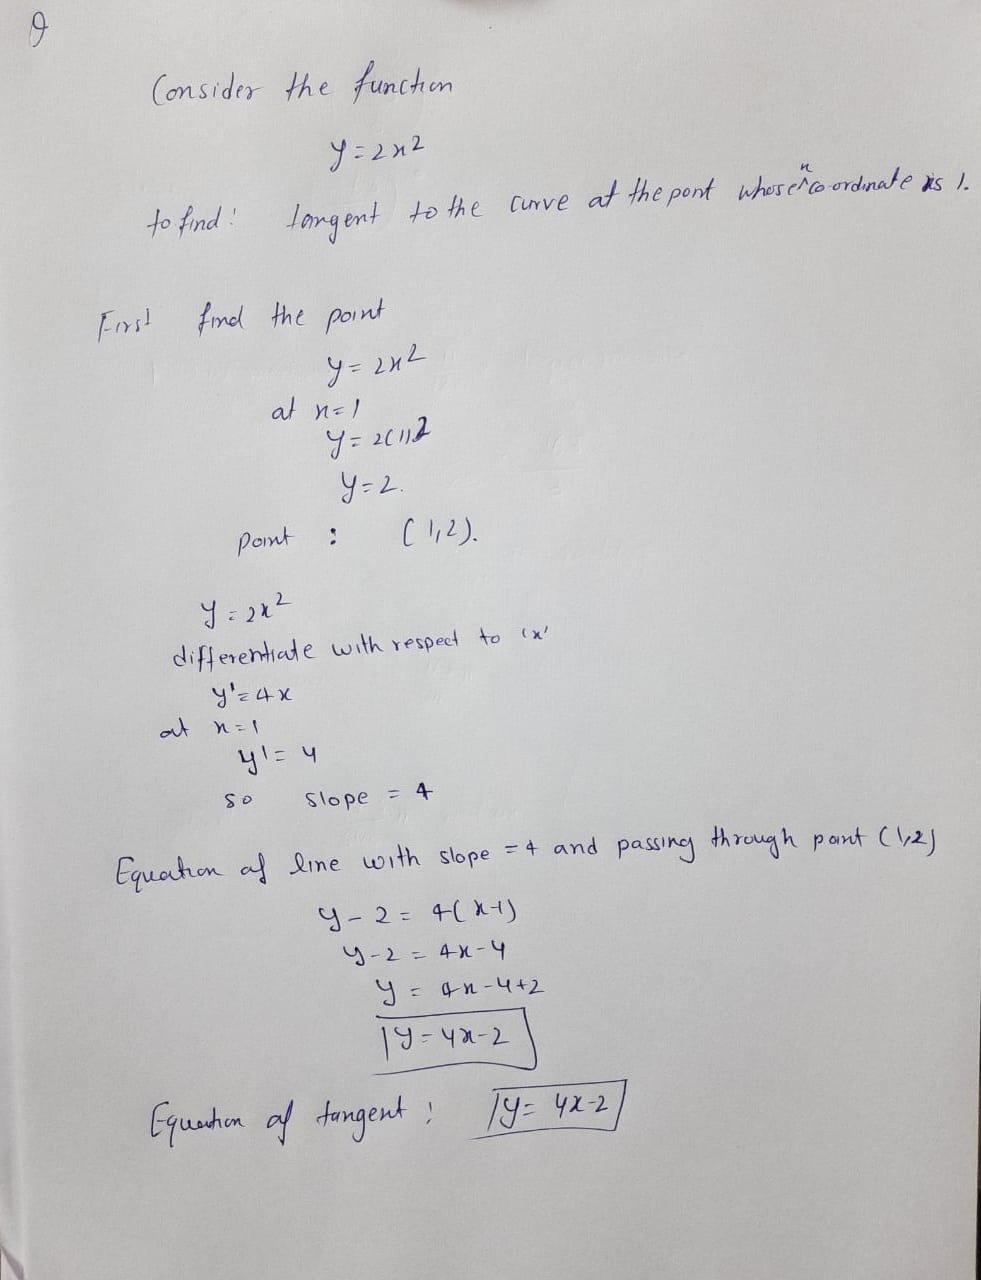 Consider the function
y = 2x²
to find: tangent to the curve at the pont whose x co-ordinate is 1.
First find the point
y = 2x²
at x=1
y = 2(1)²
y = 2.
point : (1,2).
y = 2x²
differentiate with respect to 'x'
y' = 4x
at x=1
y' = 4
so slope = 4
Equation of line with slope = 4 and passing through point (1,2)
y - 2 = 4(x-1)
y - 2 = 4x - 4
y = 4x - 4 + 2
y = 4x - 2
Equation of tangent : y = 4x - 2